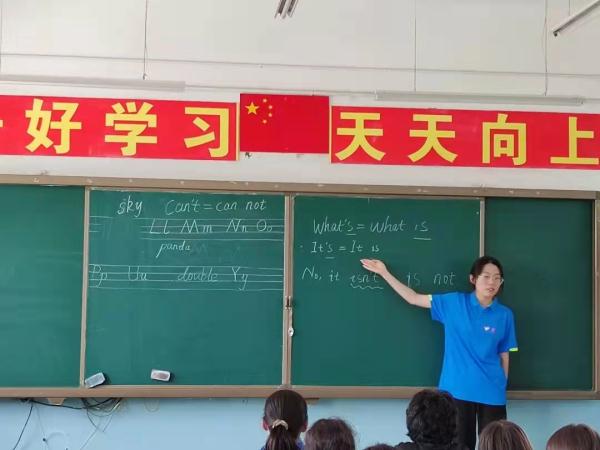 好学习 天天向上
sky Can't = can not
Ll Mm Nn Oo
panda
Pp Uu double Yy
What's = What is
It's = It is
No, it isn't is not